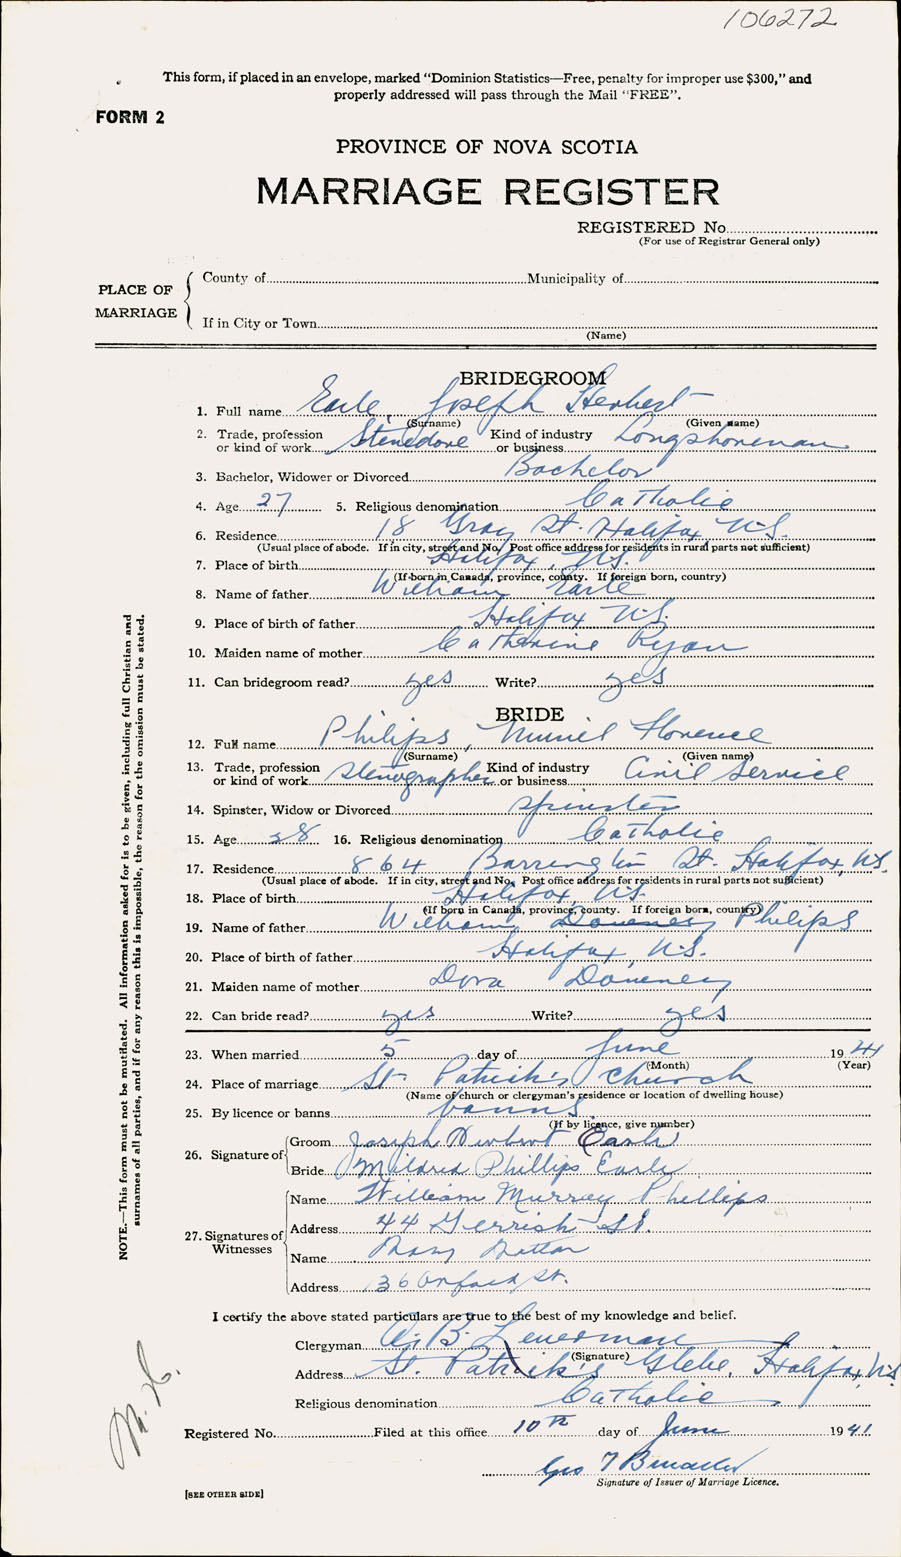 106272
This form, if placed in an envelope, marked "Dominion Statistics—Free, penalty for improper use $300," and
properly addressed will pass through the Mail "FREE".
FORM 2
PROVINCE OF NOVA SCOTIA
MARRIAGE REGISTER
REGISTERED No.
(For use of Registrar General only)
PLACE OF MARRIAGE
County of Municipality of
If in City or Town
(Name)
BRIDEGROOM
1. Full name Earle, Joseph Herbert
(Surname) (Given name)
2. Trade, profession or kind of work Stevedore Kind of industry or business Longshoreman
3. Bachelor, Widower or Divorced Bachelor
4. Age 27 5. Religious denomination Catholic
6. Residence 18 Gray St. Halifax, N.S.
(Usual place of abode. If in city, street and No. Post office address for residents in rural parts not sufficient)
7. Place of birth Halifax, N.S.
(If born in Canada, province, county. If foreign born, country)
8. Name of father William Earle
9. Place of birth of father Halifax N.S.
10. Maiden name of mother Catherine Ryan
11. Can bridegroom read? yes Write? yes
BRIDE
12. Full name Philips, Muriel Florence
(Surname) (Given name)
13. Trade, profession or kind of work stenographer Kind of industry or business Civil Service
14. Spinster, Widow or Divorced spinster
15. Age 28 16. Religious denomination Catholic
17. Residence 864 Barrington St. Halifax, N.S.
(Usual place of abode. If in city, street and No. Post office address for residents in rural parts not sufficient)
18. Place of birth Halifax, N.S.
(If born in Canada, province, county. If foreign born, country)
19. Name of father William Downey Philips
20. Place of birth of father Halifax, N.S.
21. Maiden name of mother Dora Downey
22. Can bride read? yes Write? yes
23. When married 5 day of June 1941
(Month) (Year)
24. Place of marriage St. Patrick's Church
(Name of church or clergyman's residence or location of dwelling house)
25. By licence or banns banns
(If by licence, give number)
26. Signature of
Groom Joseph Herbert Earle
Bride Mildred Phillips Earle
27. Signatures of Witnesses
Name William Murray Phillips
Address 44 Gerrish St.
Name Mary
Address 36 St.
I certify the above stated particulars are true to the best of my knowledge and belief.
Clergyman
(Signature)
Address St. Patrick's Glebe, Halifax, N.S.
Religious denomination Catholic
Registered No. Filed at this office 10th day of June 1941
Geo T
Signature of Issuer of Marriage Licence.
[SEE OTHER SIDE]
NOTE.—This form must not be mutilated. All information asked for is to be given, including full Christian and
surnames of all parties, and if for any reason this is impossible, the reason for the omission must be stated.